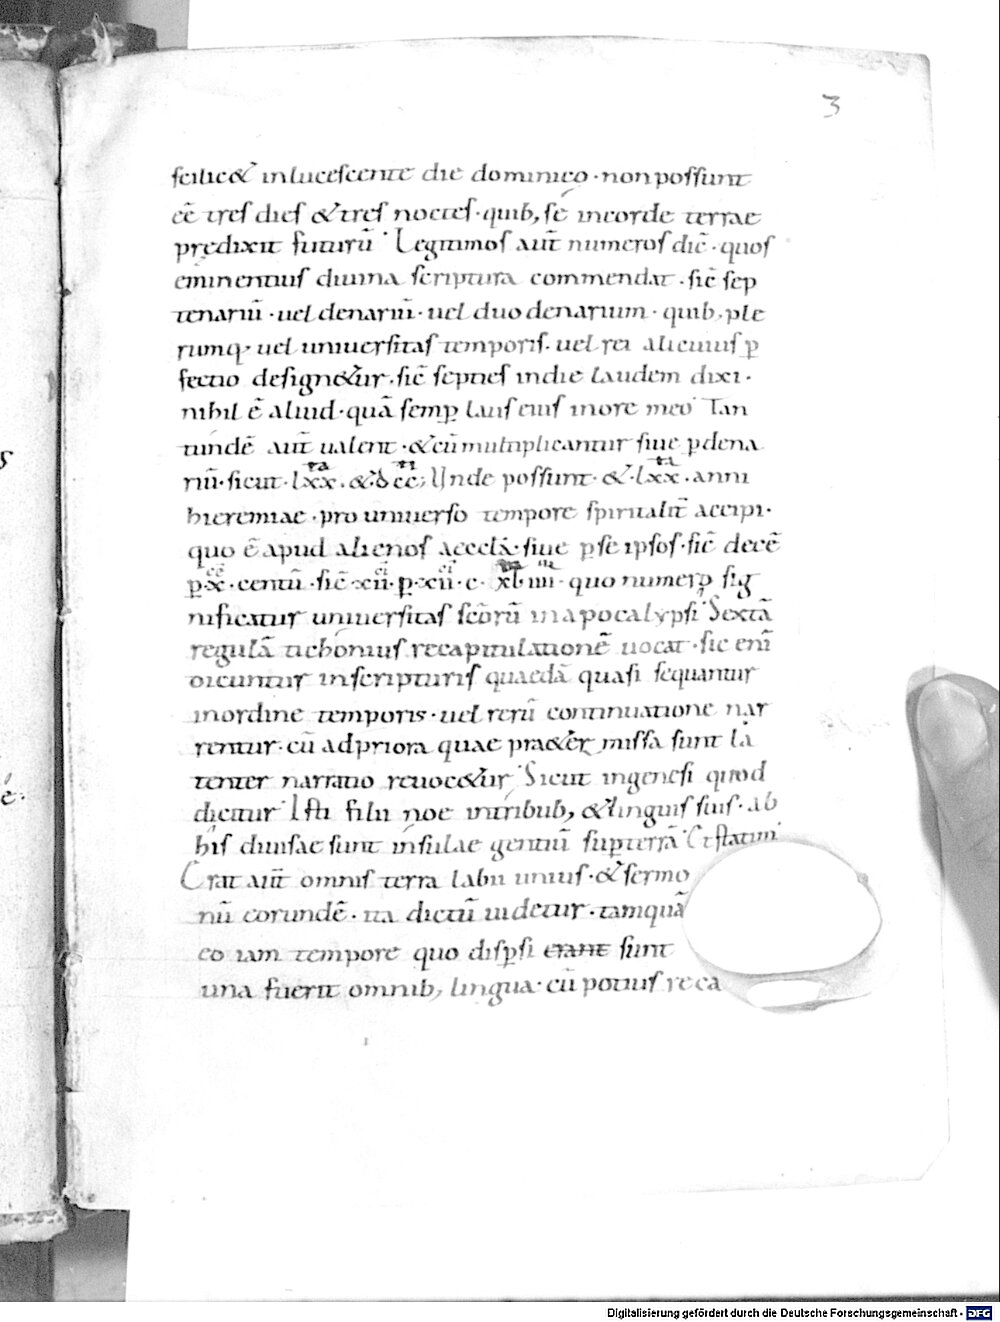 3
scilic& inlucescente die dominico · non possunt
eē tres dies &tres noctes · quib; se incorde terrae
predixit futurū · Legitimos aut̄ numeros dic̄ · quos
eminentius diuina scriptura commendat · sic̄ sep
tenariū · uel denariū · uel duodenarium · quib; ple
rumq· uel uniuersitas temporis · uel rei alicuius ꝑ
fectio design&ur · sic̄ septies indie laudem dixi ·
nihil ē aliud · quā semꝑ laus eius inore meo · Tan
tundē aut̄ ualent · &cū multiplicantur siue ꝑ dena
riū · sicut · lxx · & dcc; Unde possunt · & · lxx · anni
hieremiae · pro uniuerso tempore spiritalit̄ accipi ·
quo ē apud alienos aecclā · siue ꝑ se ipsos · sic̄ decē
ꝑ x · centū · sic̄ xii · ꝑ xii · c · xl · iiii · quo numero sig
nificatur uniuersitas scōrū inapocalypsi · Sextā
regulā tichonius recapitulationē uocat · sic enī
dicuntur inscripturis quaedā quasi sequantur
inordine temporis · uel rerū continuatione nar
rentur · cū adpriora quae pra&er missa sunt la
tenter narratio reuoc&ur · Sicut ingenesi quod
dicitur · Isti filii noe intribub; &linguis suis · ab
his diuisae sunt insulae gentiū suꝑ terrā · Et statim ·
Erat aut̄ omnis terra labii unius · & sermo
nū eorundē · ita dictū uidetur · tamquā
eo iam tempore quo disꝑsi erant sunt
una fuerit omnib; lingua · cū potius reca
Digitalisierung gefördert durch die Deutsche Forschungsgemeinschaft - DFG